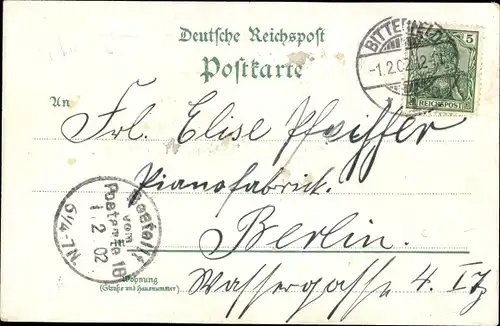 Deutsche Reichspost
Postkarte
BITTERFELD
-1.2.02. 12-
5
REICHSPOST
An
Frl. Elise Pfeiffer
Pianofabrick.
Berlin.
Wassergasse 4. I
Wohnung
(Straße und Hausnummer)
Bestellt
vom
Postamte 16
1.2.02
6¼-7N.